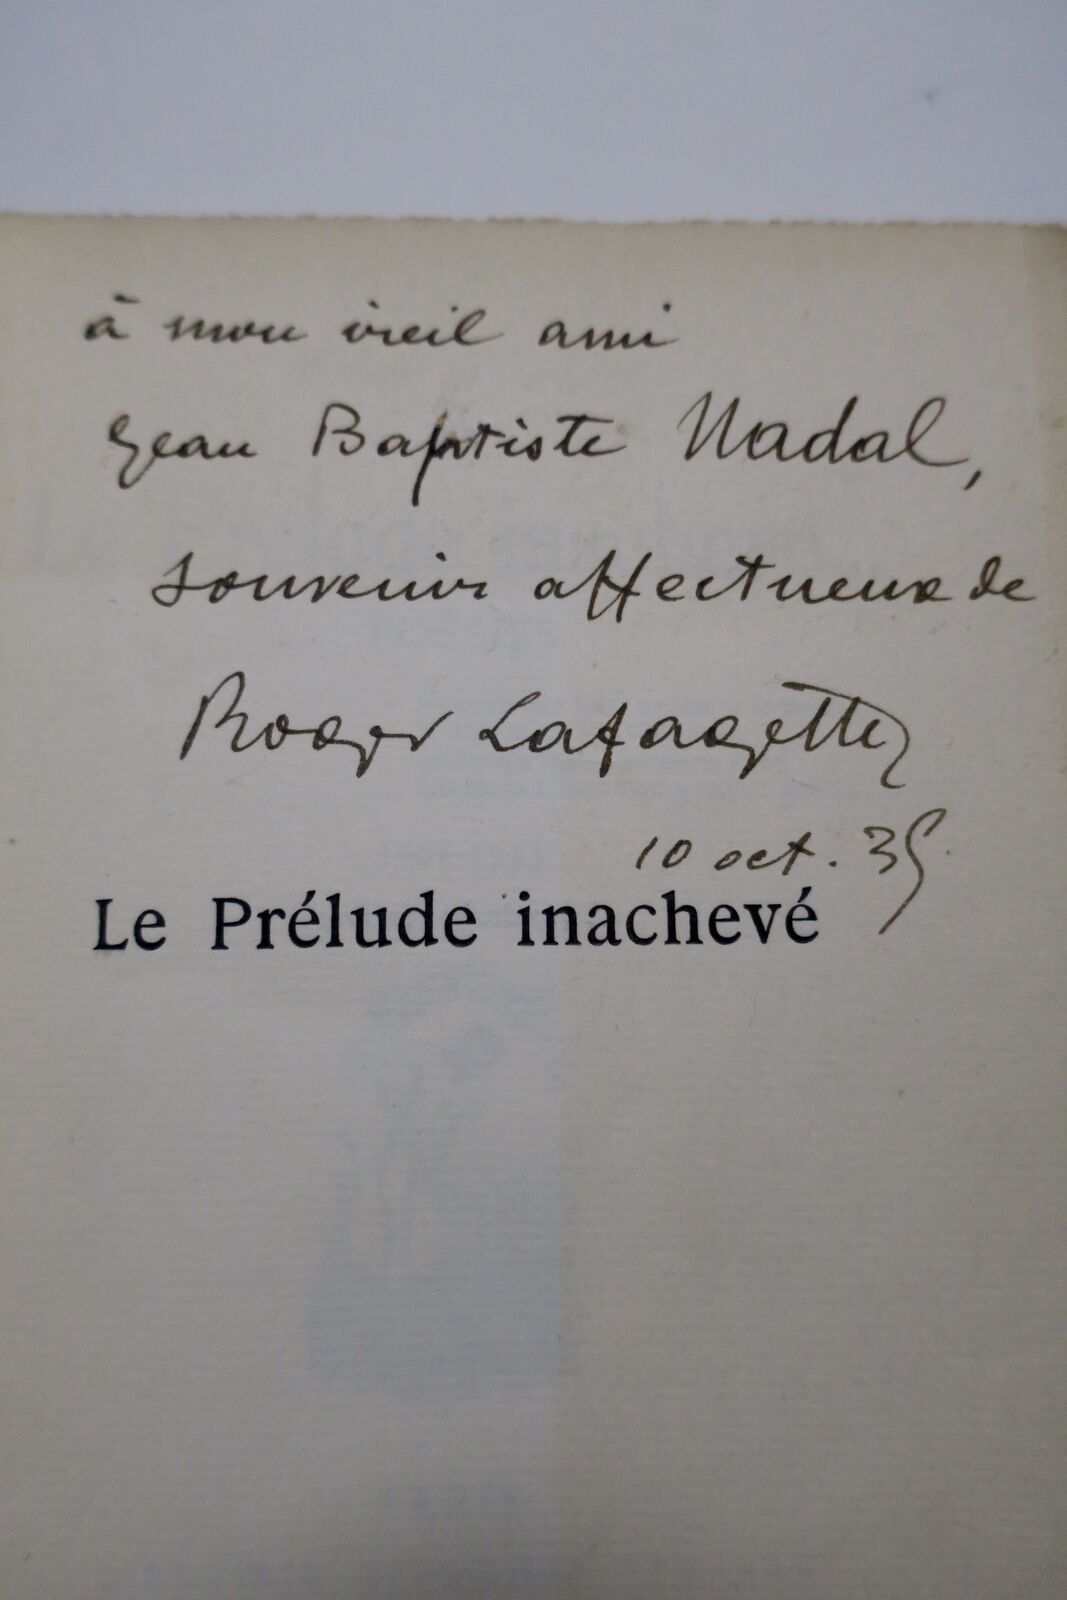 à mon vieil ami
Jean Baptiste Nadal,
souvenir affectueux de
Roger Lafagette
10 oct. 35
Le Prélude inachevé